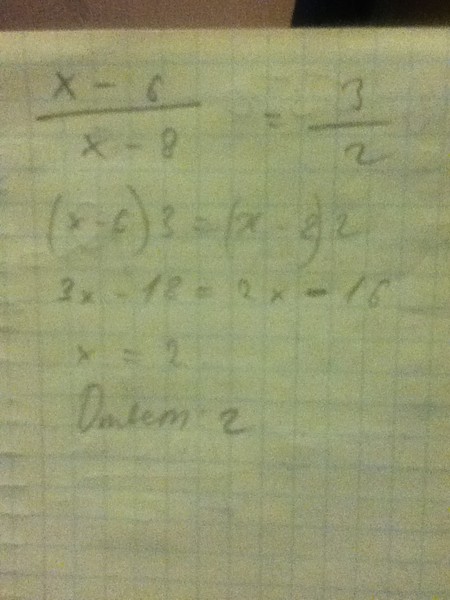 x - 6 / x - 8 = 3 / 2
(x-6)3=(x-8)2
3x-18=2x-16
x = 2
Ответ: 2